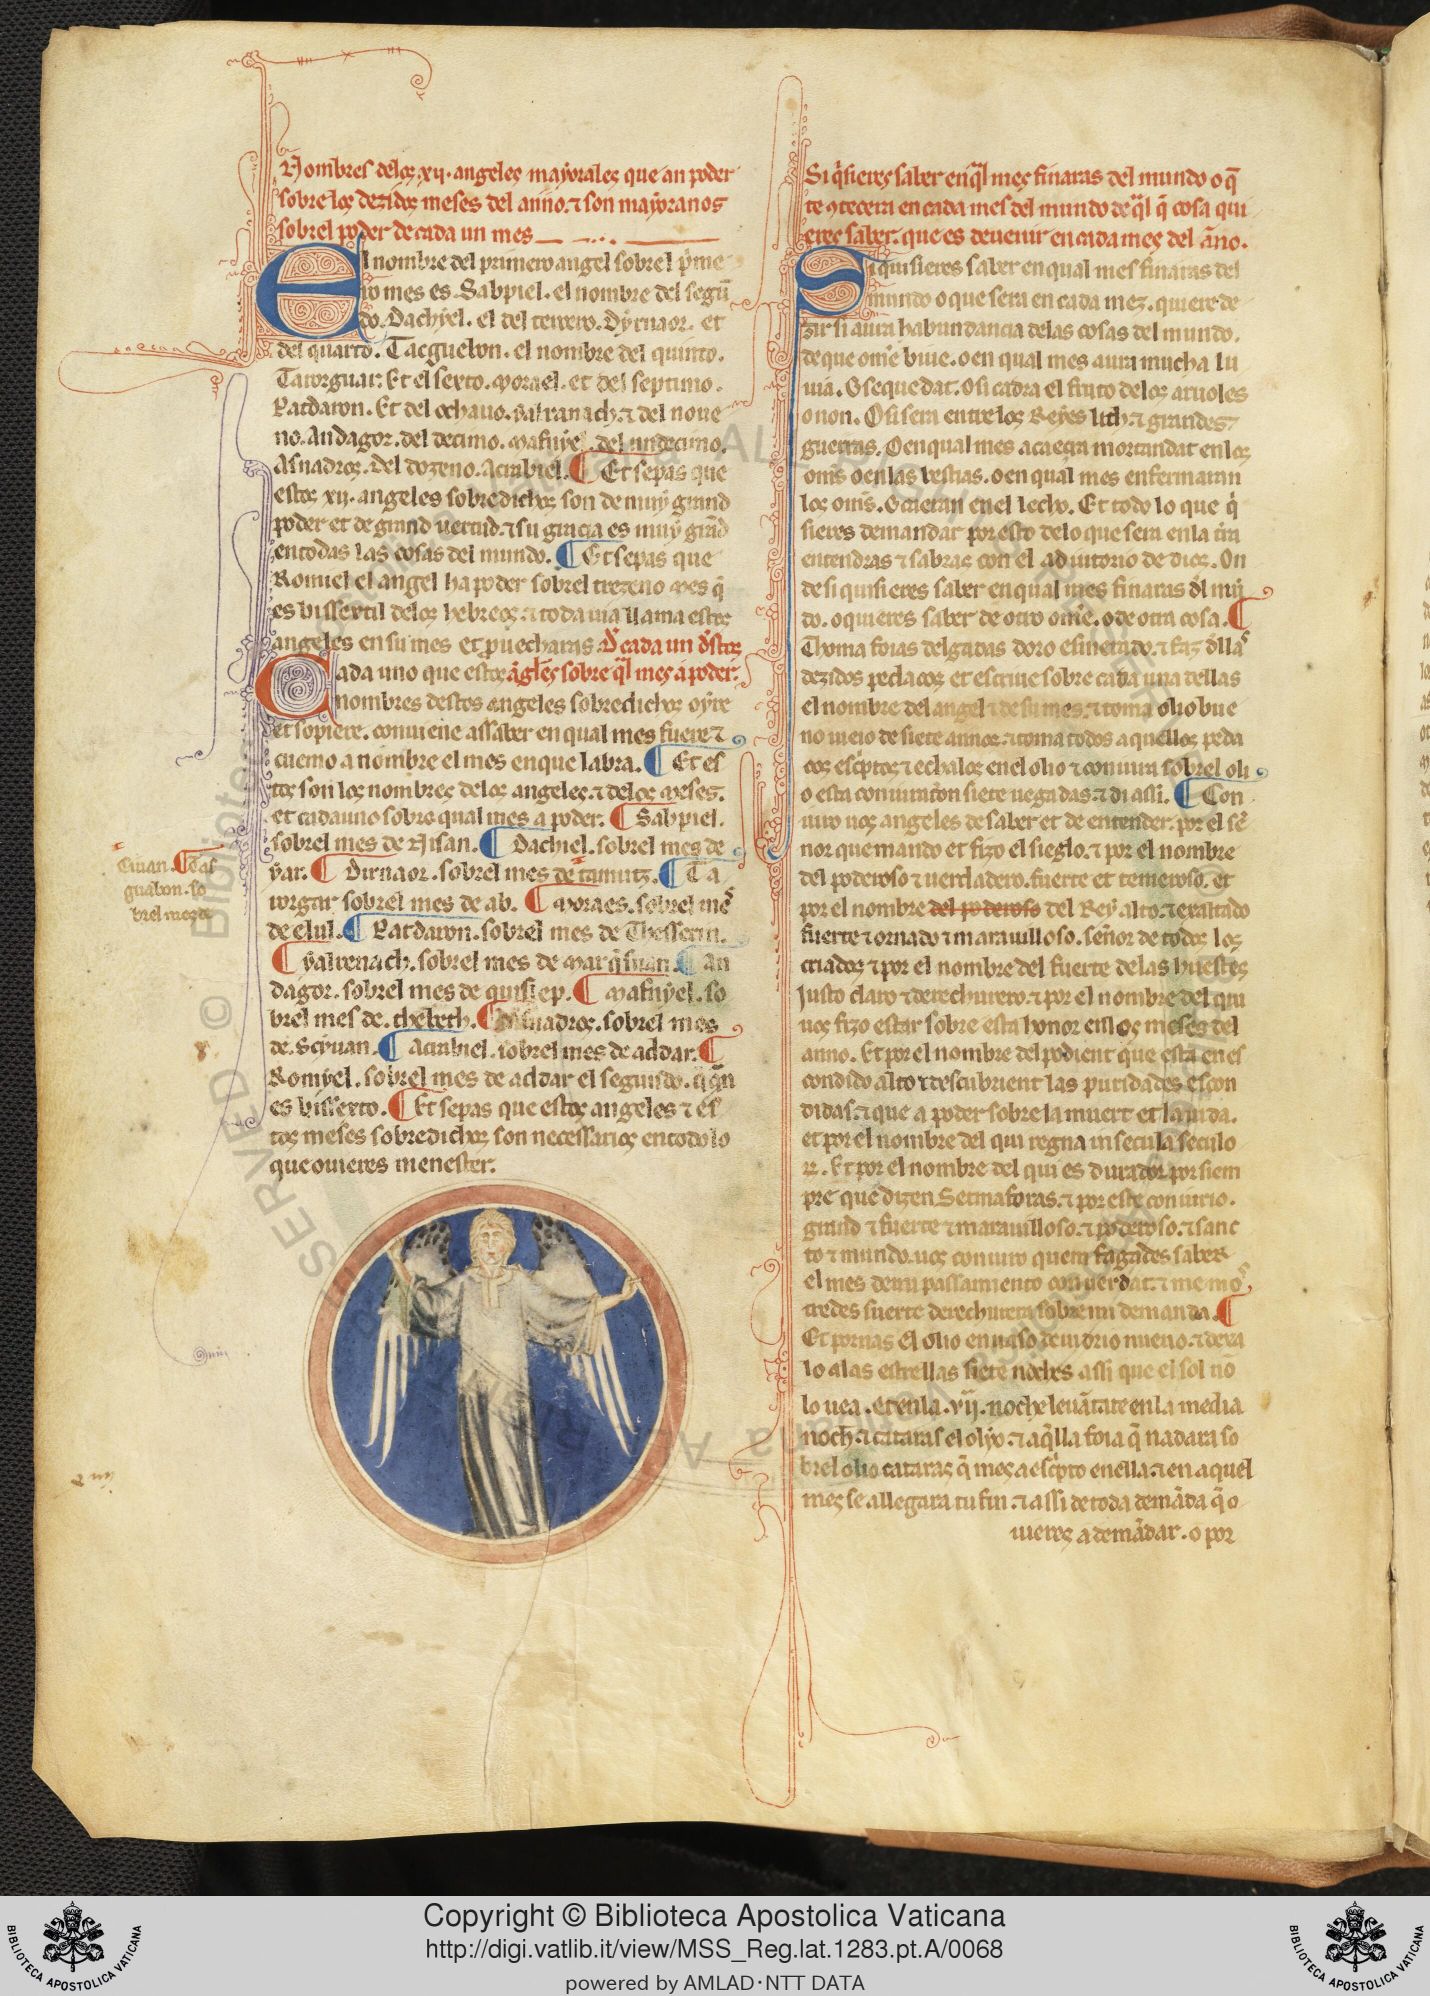 Nombres delos .xij. angeles mayorales que an poder
sobre los dezidos meses del anno. ⁊ son mayoranos
sobrel poder de cada un mes
El nombre del primero angel sobrel p̃me
ro mes es. Sabpiel. el nombre del segũ
do. Dachyel. el del tercero. Dyrnaor. et
del quarto. Tacguebon. el nombre del quinto.
Tatorguar. Et el sexto. morael. et del septimo.
Patdaron. Et del ochauo. yalranach. ⁊ del noue
no. Andagor. del decimo. mafnyel. del undecimo.
Asuadros. Del dozeno. Acinbiel. ¶ Et sepas que
estos xij. angeles sobredichos son de muy grand
poder et de grand uertud. ⁊ su gracia es muy grãd
en todas las cosas del mundo. ¶ Et sepas que
Romiel el angel ha poder sobrel trezeno mes q̃
es bissextil delos hebreos. ⁊ toda uia llama estos
angeles en su mes et puecharas. D̃ cada un d̃stos
Cada uno que estos ãgl̃es sobre q̃l mes a poder.
nombres destos angeles sobredichos oyre
et sopiere. conuiene assaber en qual mes fuere ⁊
cuemo a nombre el mes en que labra. ¶ Et es
tos son los nombres delos angeles. ⁊ delos meses.
et cadauno sobre qual mes a poder. ¶ Sabpiel.
sobrel mes de Nisan. ¶ Dachiel. sobrel mes de
yar. ¶ Dirnaor. sobrel mes de tamutz. ¶ Ta
torgar sobrel mes de ab. ¶ moraes. sobrel mes
de elul. ¶ Patdaron. sobrel mes de Thesserin.
¶ yalrenach. sobrel mes de marq̃suan. ¶ An
dagor. sobrel mes de quislep. ¶ mafnyel. so
brel mes de. thebeth. ¶ Asuadros. sobrel mes
de. Scyuan. ¶ Acinbiel. sobrel mes de addar. ¶
Romyel. sobrel mes de addar el segundo. q̃ q̃n
es bissexto. ¶ Et sepas que estos angeles ⁊ es
tos meses sobredichos son necessarios en todo lo
que ouieres menester.
Ciuan. ¶ Tac
guabon. so
brel mes de
Si q̃sieres saber en q̃l mes finaras del mundo o q̃
te ꝯtecera en cada mes del mundo de q̃l q̃ cosa qui
eres saber. que es deuenir en cada mes del ãno.
Si quisieres saber en qual mes finaras del
mundo o que sera en cada mez. quiere de
zir si aura habundancia delas cosas del mundo.
de que om̃e biue. o en qual mes aura mucha lu
uia. O sequedat. O si cadra el fruto delos aruoles
o non. O si sera entre los Reyes lith. ⁊ grandes
guerras. O en qual mes acaecra mortandat en los
om̃s o en las bestias. o en qual mes enfermaran
los om̃s. O caeran en el lecho. Et todo lo que q̃
sieres demandar por esto delo que sera en la tr̃ra
entendras ⁊ sabras con el adiutorio de dios. On
de si quisieres saber en qual mes finaras d̃l mũ
do. o quieres saber de otro om̃e. o de otra cosa. ¶
Thoma foias delgadas doro esmerado. ⁊ faz d̃llas
dezidos pedaços et escriue sobre cada una dellas
el nombre del angel ⁊ de su mes. ⁊ toma olio bue
no uieio de siete annos. ⁊ toma todos aquellos peda
cos esc̃ptos ⁊ echalos en el olio ⁊ coniura sobrel oli
o esta coniuration siete uegadas ⁊ di assi. ¶ Con
iuro uos angeles de saber et de entender. por el se
nor que mando et fizo el sieglo. ⁊ por el nombre
del poderoso ⁊ uerdadero. fuerte et temeroso. et
por el nombre del poderoso del Rey alto. ⁊ exaltado
fuerte ⁊ ornado ⁊ marauilloso. señor de todos los
criados ⁊ por el nombre del fuerte delas huestes
Justo claro ⁊ derechurero. ⁊ por el nombre del qui
uos fizo estar sobre esta honor en los meses del
anno. Et por el nombre del podient que esta en es
condido alto ⁊ descubrient las puridades escon
didas. ⁊ que a poder sobre la muert et la uida.
et por el nombre del qui regna in secula seculo
rum. Et por el nombre del qui es durador por siem
pre que dizen Semaforas. ⁊ por este coniurio.
grand ⁊ fuerte ⁊ marauilloso. ⁊ poderoso. ⁊ sanc
to ⁊ mundo. uos coniuro quem fagades saber
el mes de mi passamiento con uerdat. ⁊ me mos
tredes suerte derechurera sobre mi demanda. ¶
Et pornas el olio en uaso de uidrio nueuo. ⁊ dexa
lo alas estrellas siete noches assi que el sol nõ
lo uea. Et en la .vij. noche leuãtate en la media
noch̃. ⁊ cataras el olyo. ⁊ aq̃lla foia q̃ nadara so
brel olio cataras q̃ mes a esc̃pto en ella. ⁊ en aquel
mes se allegara tu fin. ⁊ assi de toda demãda q̃ o
uieres a demãdar. o por
Copyright © Biblioteca Apostolica Vaticana
http://digi.vatlib.it/view/MSS_Reg.lat.1283.pt.A/0068
powered by AMLAD·NTT DATA
BIBLIOTECA APOSTOLICA VATICANA
BIBLIOTECA APOSTOLICA VATICANA